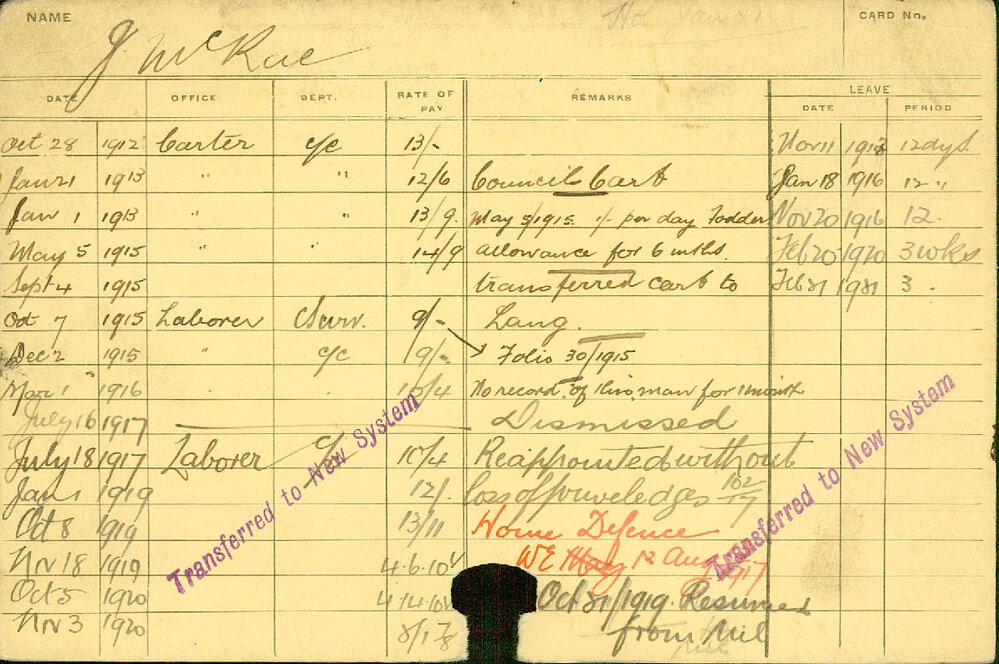 NAME
J McRae
CARD No.
DATE OFFICE DEPT. RATE OF PAY REMARKS LEAVE
DATE PERIOD
Oct 28 1912 Carter c/c 13/- Nov 11 191 12 dys.
Jan 21 1913 " " 12/6 Council Cart Jan 18 1916 12 "
Jan 1 1913 " " 13/9. May 5/1915. 1/- per day Fodder Nov 20 1916 12.
May 5 1915 " " 14/9 allowance for 6 mths. Feb 20 1920 3 wks
Sept 4 1915 transferred cart to Feb 21 1921 3 .
Oct 7 1915 Laborer Surv. 9/- Lang.
Dec 2 1915 " c/c 9/- Folio 30/1915
Mar 1 1916 10/4 No record of this man for 1 month
July 16 1917 Dismissed
July 18 1917 Laborer 10/4 Reappointed without
Jan 1 1919 12/. loss of priveledges 102/17
Oct 8 1919 13/11 Home Defence
Nov 18 1919 4.6.10 WE 12 Aug 1917
Oct 5 1920 4.14.10 Oct 31/1919 Resumed
Nov 3 1920 from Mil
Transferred to New System
Transferred to New System